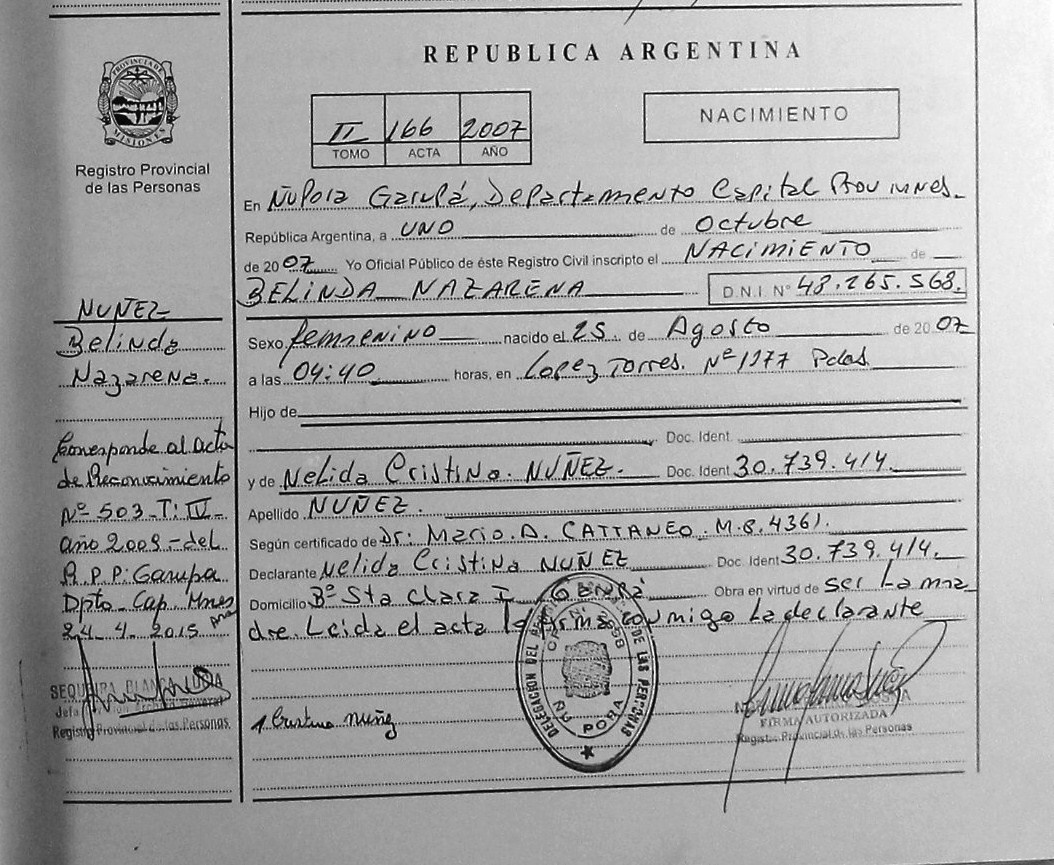 REPUBLICA ARGENTINA
PROVINCIA DE MISIONES
Registro Provincial
de las Personas
II 166 2007
TOMO ACTA AÑO
NACIMIENTO
En Ñupora Garupá, Departamento Capital
República Argentina, a UNO de Octubre
de 2007 Yo Oficial Público de éste Registro Civil inscripto el NACIMIENTO de
BELINDA NAZARENA D.N.I. Nº 48.265.568.
Sexo femenino nacido el 25 de Agosto de 2007
a las 04:40 horas, en Lopez Torres. Nº 1177 Pdas
Hijo de
Doc. Ident.
y de Nelida Cristina NUÑEZ. Doc. Ident 30.739.414.
Apellido NUÑEZ.
Según certificado de Dr: Mario. A. CATTANEO. M.P. 4361.
Declarante Nelida Cristina NUÑEZ Doc. Ident 30.739.414.
Domicilio Bº Sta Clara I Garupá Obra en virtud de ser La ma
dre. Leida el acta la firma conmigo La declarante
NUÑEZ
Belinda
Nazarena.
Corresponde al Acta
de Reconocimiento
Nº 503 T: IV
año 2009 del
R.P.P: Garupa
Dpto Cap. Mnes
24. 4. 2015
SEQUEIRA BLANCA
Registro Provincial de las Personas
Cristina Nuñez
DELEGACION DEL REGISTRO DE LAS PERSONAS
ÑU PORA
FIRMA AUTORIZADA
Registro Provincial de las Personas